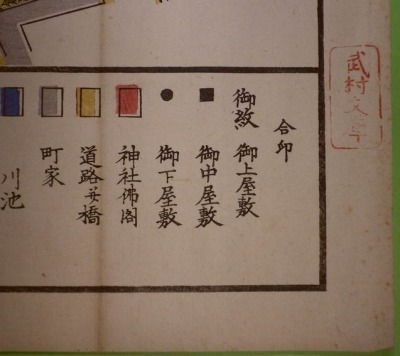 合印
御紋 御上屋敷
■ 御中屋敷
● 御下屋敷
神社佛閣
道路并橋
町家
川池
武村